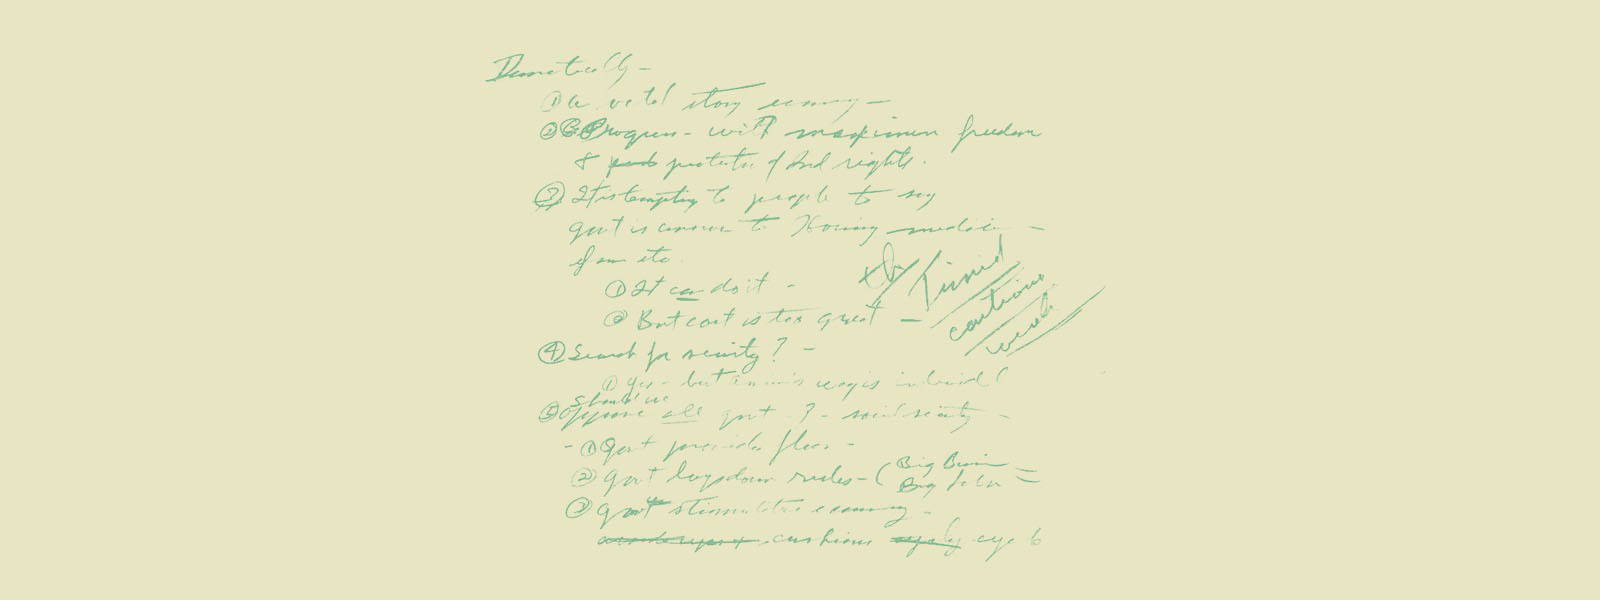 Domestically —
① a vital strong economy —
② Progress - with maximum freedom
& protection of Ind rights.
③ It is tempting to people to say
govt is answer to Housing medicine —
farm etc.
① It can do it -
② But cost is too great —
Timid
cautious
weak
④ Search for security? -
① Yes - but is individual
should we
⑤ oppose all govt - ? - social security -
- ① Govt provides floor -
② Govt lays down rules - (Big Business
Big Labor
③ govt stimulates economy -
cushions